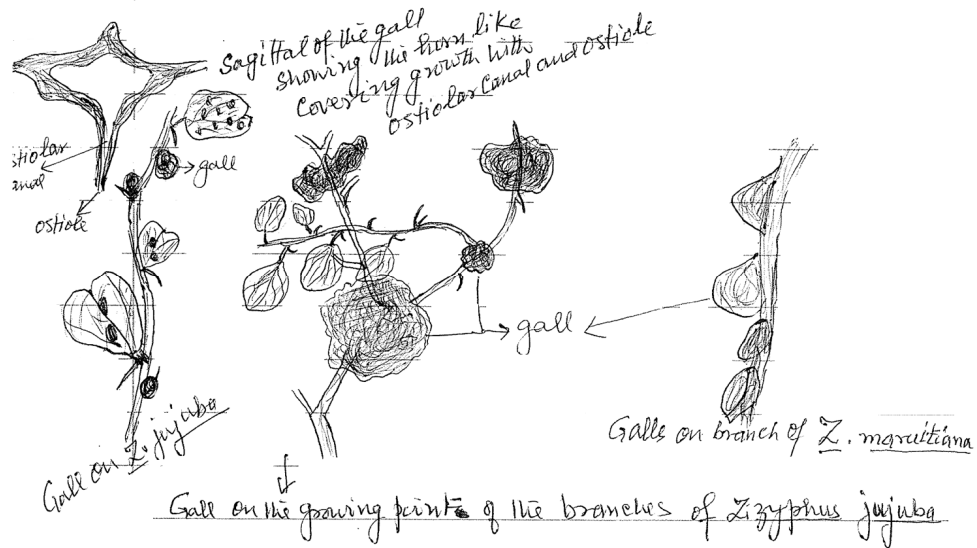 Sagittal of the gall
showing the horn like
covering growth with
ostiolar canal and ostiole
stiolar
anal
ostiole
gall
gall
Gall on Z. jujuba
Galls on branch of Z. maruitiana
Gall on the growing points of the branches of Zizyphus jujuba